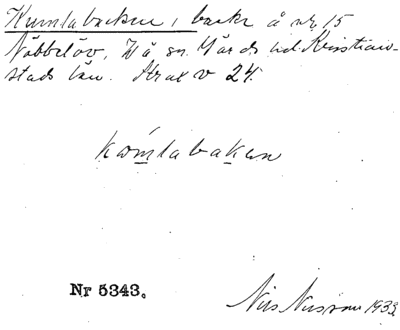 Kumlabacken, backe å nr 15
Nöbbelöv, Vä sn. Gärds hd Kristian-
stads län. Strax v 24.
kómlabakan
Nr 5343.
Nils Nilsson 1933